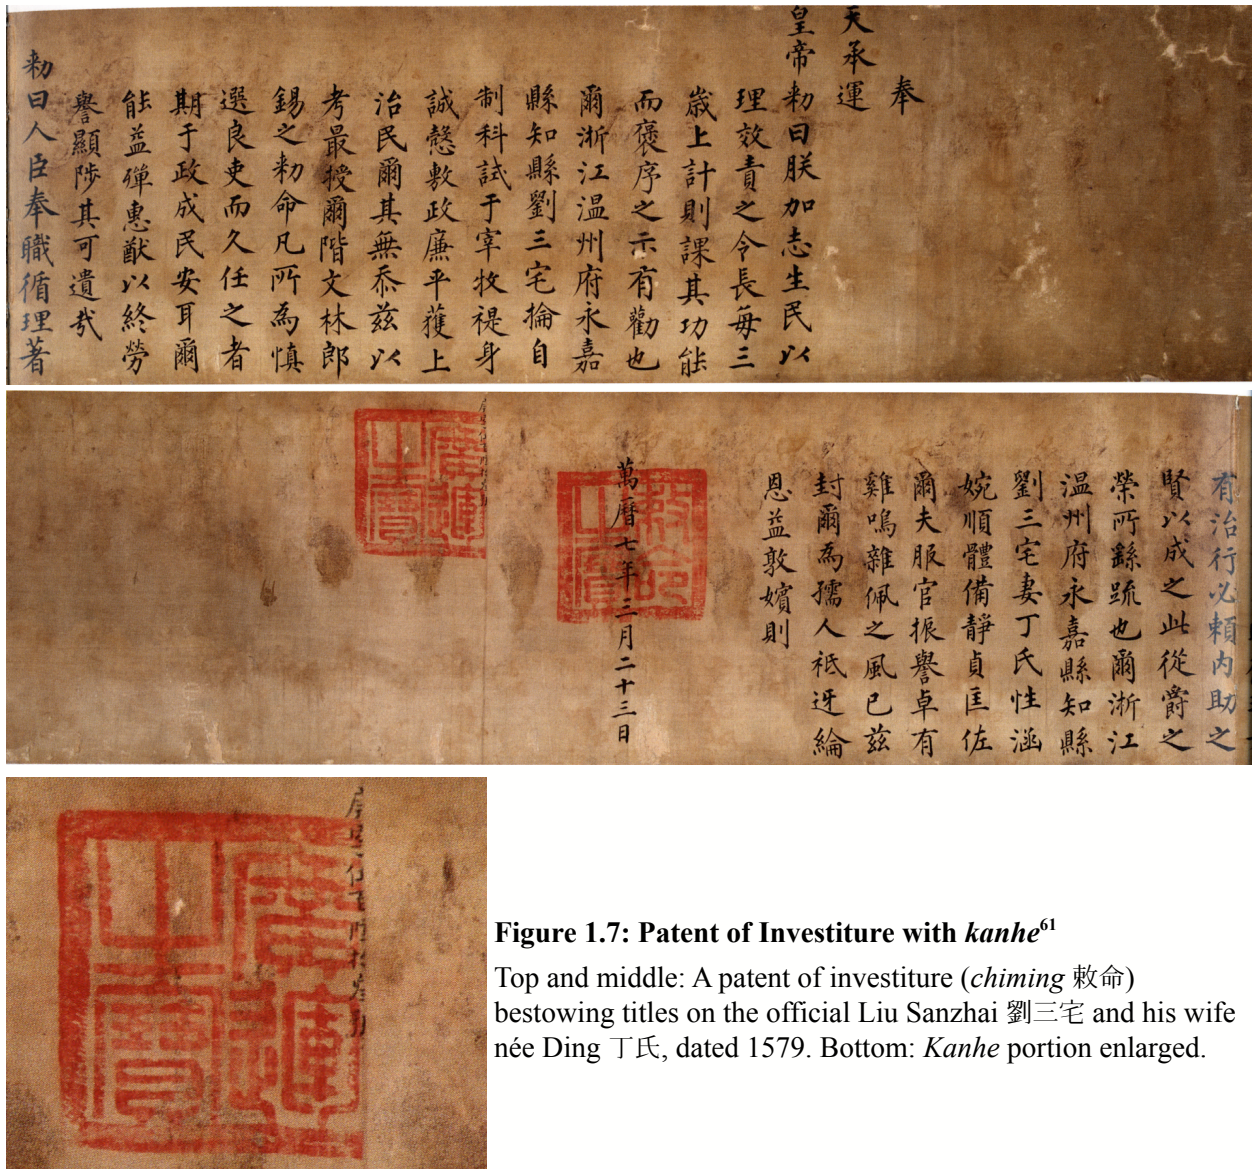 奉
天承運
皇帝勑曰朕加志生民以
理效責之令長每三
歲上計則課其功能
而褒序之示有勸也
爾浙江温州府永嘉
縣知縣劉三宅掄自
制科試于宰牧禔身
誠慤敷政廉平獲上
治民爾其無忝兹以
考最授爾階文林郎
錫之勑命凡所為慎
選良吏而久任之者
期于政成民安耳爾
能益殫惠猷以終勞
譽顯陟其可遺哉
勑曰人臣奉職循理著
有治行必頼内助之
賢以成之此從爵之
榮所繇疏也爾浙江
温州府永嘉縣知縣
劉三宅妻丁氏性涵
婉順體備靜貞匡佐
爾夫服官振譽卓有
雞鳴雜佩之風已兹
封爾為孺人祗迓綸
恩益敦嬪則
萬曆七年三月二十三日
敕命之寶
廣運之寶
廣運之寶
Figure 1.7: Patent of Investiture with kanhe61
Top and middle: A patent of investiture (chiming 敕命)
bestowing titles on the official Liu Sanzhai 劉三宅 and his wife
née Ding 丁氏, dated 1579. Bottom: Kanhe portion enlarged.